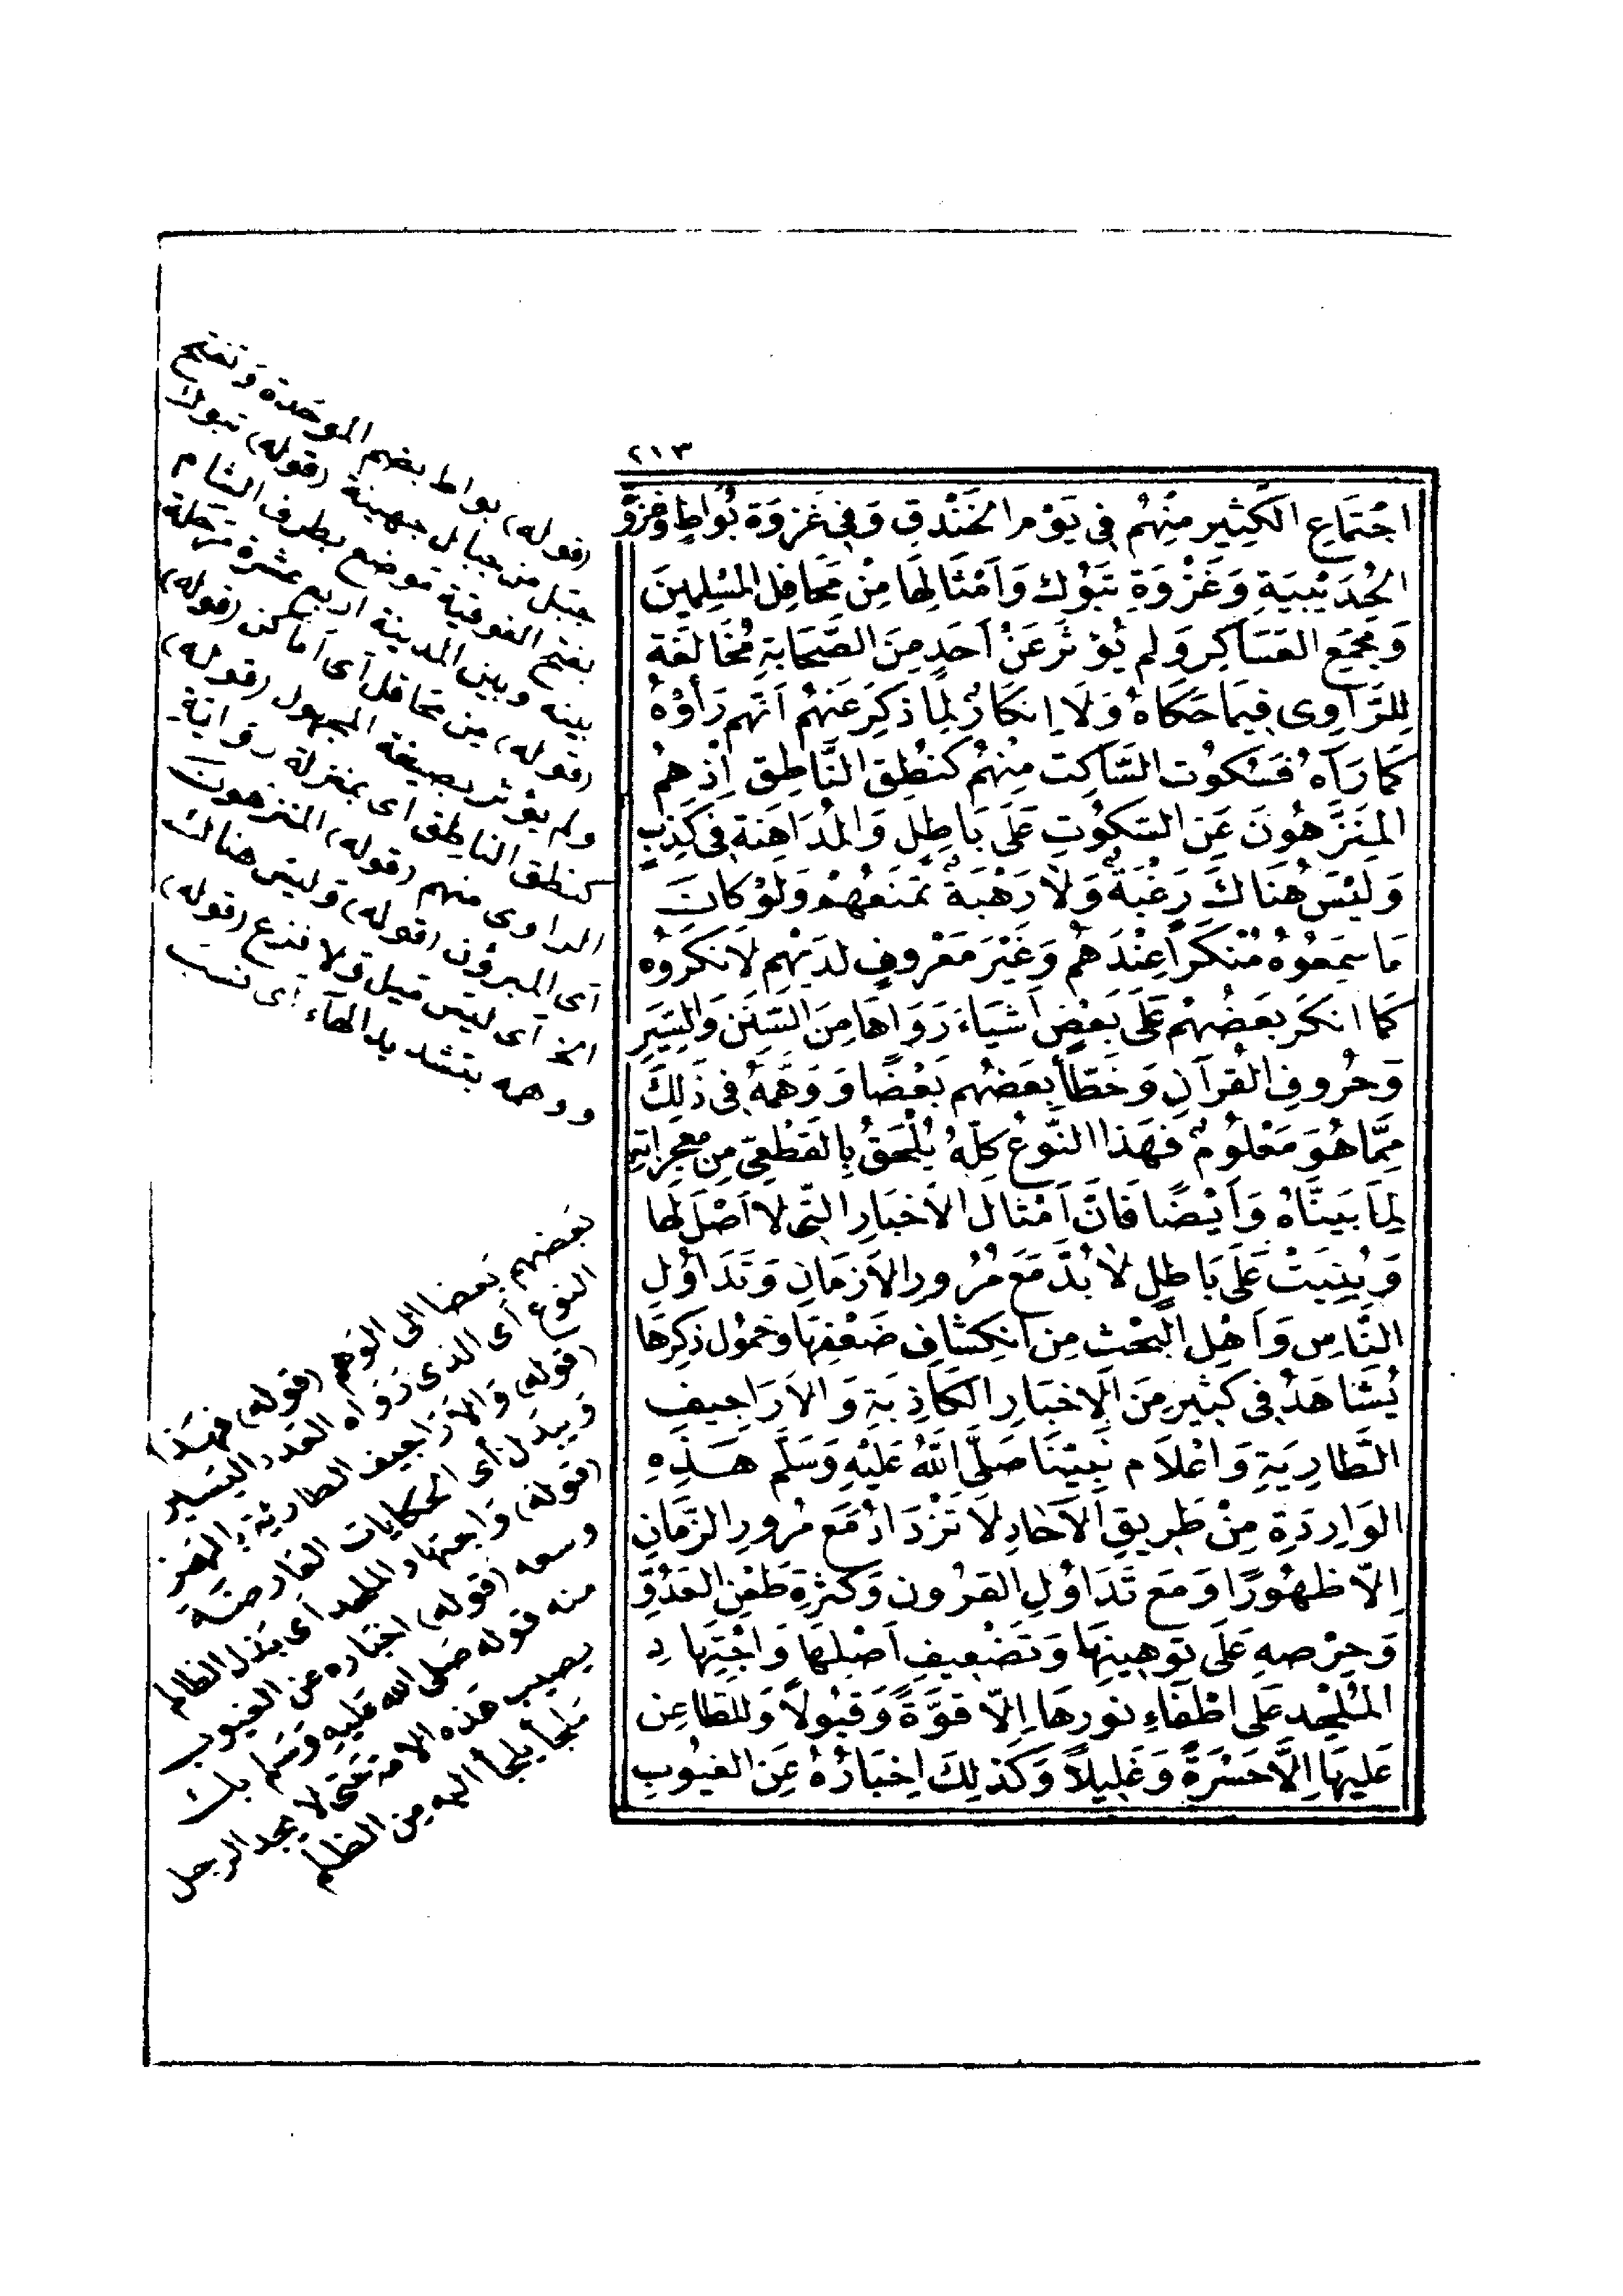 ٢١٣
اجْتِمَاعِ الكَثِيرِ مِنْهُم فِى يَوْمِ الخَنْدَقِ وَفِى غَزْوَةِ بُوَاطٍ وَعُمْرَةِ
الحُدَيْبِيَةِ وَغَزْوَةِ تَبُوْكَ وَاَمْثَالِهَا مِنْ مَحَافِلِ المُسْلِمِينَ
وَمَجْمَعِ العَسَاكِرِ وَلَم يُؤْثَرْ عَنْ اَحَدٍ مِنَ الصَّحَابَةِ مُخَالَفَةٌ
لِلرَّاوِى فِيمَا حَكَاهُ وَلَا اِنكَارٌ لِمَا ذُكِرَ عَنْهُم اَنَّهم رَأَوْهُ
كَمَا رَآهُ فَسُكُوتُ السَّاكِتِ مِنْهُم كَنُطْقِ النَّاطِقِ اِذْ هُمُ
المُنَزَّهُونَ عَنِ السُّكُوتِ عَلَى بَاطِلٍ وَالمُدَاهَنَةِ فِى كَذِبٍ
وَلَيْسَ هُنَاكَ رَغْبَةٌ وَلَا رَهْبَةٌ تَمنَعُهُمْ وَلَوْ كَانَ
مَا سَمِعُوهُ مُنْكَرًا عِنْدَهُم وَغَيْرَ مَعْرُوفٍ لَدَيْهِم لَانكَرُوهُ
كَمَا انكَرَ بَعْضُهُمْ عَلَى بَعْضٍ اَشْيَاءَ رَوَاهَا مِنَ السُّنَنِ وَالسِّيَرِ
وَحُرُوفِ القُرآنِ وَخَطَّأَ بَعْضُهُم بَعْضًا وَوَهَّمَهُ فِى ذَلِكَ
مِمَّا هُوَ مَعْلُومٌ فَهَذَا النَّوْعُ كُلُّهُ يُلْحَقُ بِالقَطْعِىِّ مِن مُعْجِزَاتِهِ
لِمَا بَيَنَّاهُ وَاَيْضًا فَاِنَّ اَمْثَالَ الاَخْبَارِ الَّتِى لَا اَصْلَ لَهَا
وَبُنِيَتْ عَلَى بَاطِلٍ لَا بُدَّ مَعَ مُرُورِ الاَزمَانِ وَتَدَاوُلِ
النَّاسِ وَاَهْلِ البَحْثِ مِنِ انْكِشَافِ ضَعْفِهَا وَخُمُولِ ذِكْرِهَا
يُشَاهَدُ فِى كَثِيرٍ مِنَ الاَخْبَارِ الكَاذِبَةِ وَالاَرَاجِيفِ
الطَّارِيَةِ وَاَعْلَامُ نَبِيِّنَا صَلَّى اللهُ عَلَيْهِ وَسَلَّمَ هَذِهِ
الوَارِدَةُ مِنْ طَرِيقِ الآحَادِ لَا تَزْدَادُ مَعَ مُرُورِ الزَّمَانِ
اِلَّا ظُهُورًا وَمَعَ تَدَاوُلِ القُرُونِ وَكَثْرَةِ طَعْنِ العَدُوِّ
وَحِرْصِهِ عَلَى تَوهِينِهَا وَتَضْعِيفِ اَصْلِهَا وَاجْتِهَادِ
المُلْحِدِ عَلَى اطْفَاءِ نُورِهَا اِلَّا قُوَّةً وَقَبُولًا وَلِلطَّاعِنِ
عَلَيْهَا اِلَّا حَسْرَةً وَغَلِيلًا وَكَذَلِكَ اِخْبَارُهُ عَنِ الغُيُوبِ
(قوله) بواط بضم الموحدة وتفتح
جبل من جبال جهينة (قوله) تبوك
بفتح الفوقية موضع بطرف الشام
بينه وبين المدينة اربع عشرة مرحلة
(قوله) من محافل اى اماكن (قوله)
ولم يؤثر بصيغة المجهول (قوله)
كنطق الناطق اى بمنزلة رواية
الراوى منهم (قوله) المنزهون
اى المبرؤن (قوله) وليس هناك
الخ اى ليس ميل ولا فزع (قوله)
ووهمه بتشديد الهاء اى نسب
بعضهم بعضا الى الوهم (قوله) فهذا
النوع اى الذى رواه العدد اليسير
(قوله) والاراجيف الطارئة بالهمز
ويبدل اى الحكايات العارضة
(قوله) واجتهاد الملحد اى بذل الظالم
وسعه (قوله) اخباره عن الغيوب
منه قوله صلى الله عليه وسلم بلاء
يصيب هذه الامة حتى لا يجد الرجل
ملجأ يلجأ اليه من الظلم